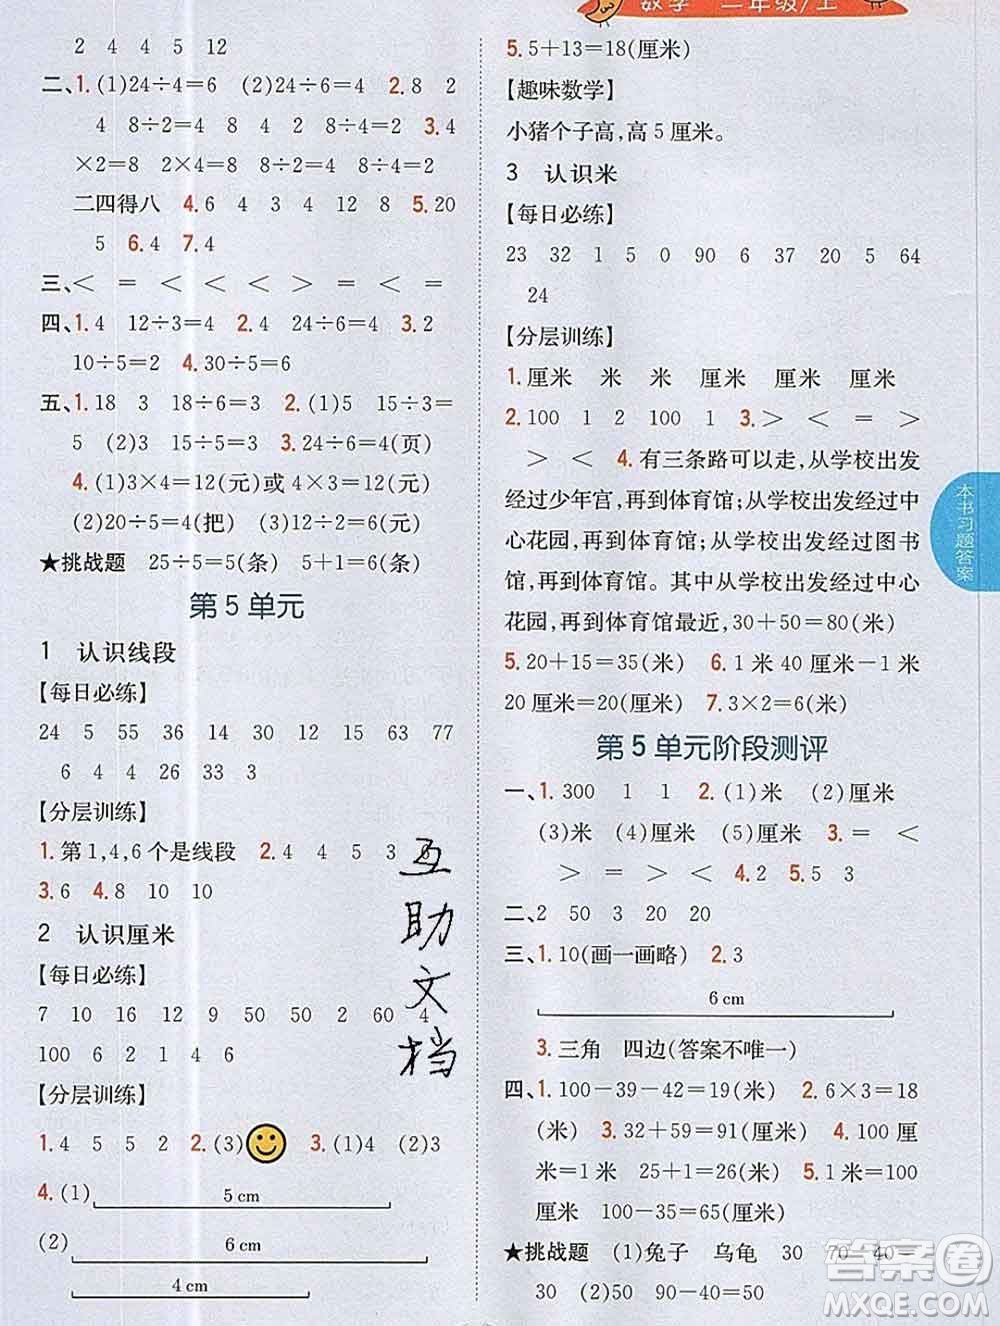 数学 二年级/上
2 4 4 5 12
二、1.(1)24÷4=6 (2)24÷6=4 2.8 2
4 8÷2=4 8 4 2 8÷4=2 3.4
×2=8 2×4=8 8÷2=4 8÷4=2
二四得八 4.6 4 3 4 12 8 5.20
5 6.4 7.4
三、< = < < < > = < < =
四、1.4 12÷3=4 2.4 24÷6=4 3.2
10÷5=2 4.30÷5=6
五、1.18 3 18÷6=3 2.(1)5 15÷3=
5 (2)3 15÷5=3 3.24÷6=4(页)
4.(1)3×4=12(元)或 4×3=12(元)
(2)20÷5=4(把) (2)12÷2=6(元)
★挑战题 25÷5=5(条) 5+1=6(条)
第 5 单元
1 认识线段
【每日必练】
24 5 55 36 14 30 12 15 63 77
6 4 4 56 22 33 3
【分层训练】
1.第 1,4,6 个是线段 2.4 4 5 3 6
3.6 4.8 10 10
2 认识厘米
【每日必练】
7 10 16 2 9 50 50 2 60 4
100 6 2 1 4 6
【分层训练】
1.4 5 5 2 2.(3) 3.(1)4 (2)3
4.(1) 5 cm
(2) 6 cm
4 cm
5.5+13=18(厘米)
【趣味数学】
小猪个子高,高 5 厘米。
3 认识米
【每日必练】
23 32 1 5 0 90 6 37 20 5 64
24
【分层训练】
1.厘米 米 米 厘米 厘米 厘米
2.100 1 2 100 1 3.> < = <
> < 4.有三条路可以走,从学校出发
经过少年宫,再到体育馆;从学校出发经过中
心花园,再到体育馆;从学校出发经过图书
馆,再到体育馆。其中从学校出发经过中心
花园,再到体育馆最近,30+50=80(米)
5.20+15=35(米) 6.1 米 40 厘米－1 米
20 厘米=20(厘米) 7.3×2=6(米)
第 5 单元阶段测评
一、1.300 1 1 2.(1)米 (2)厘米
(3)米 (4)厘米 (5)厘米 3.= <
> = > < 4.2 5 3
二、2 50 3 20 20
三、1.10(画一画略) 2.3
6 cm
3.三角 四边(答案不唯一)
四、1.100－39－42=19(米) 2.6×3=18
(米) 3.32+59=91(米) 4.100 厘
米=1 米 25+1=26(米) 5.1 米=100
厘米 100－35=65(厘米)
★挑战题 (1)兔子 乌龟 30 70－40=
30 (2)50 90－40=50
本书习题答案
互
助
文
档
答案圈
MXQE.COM